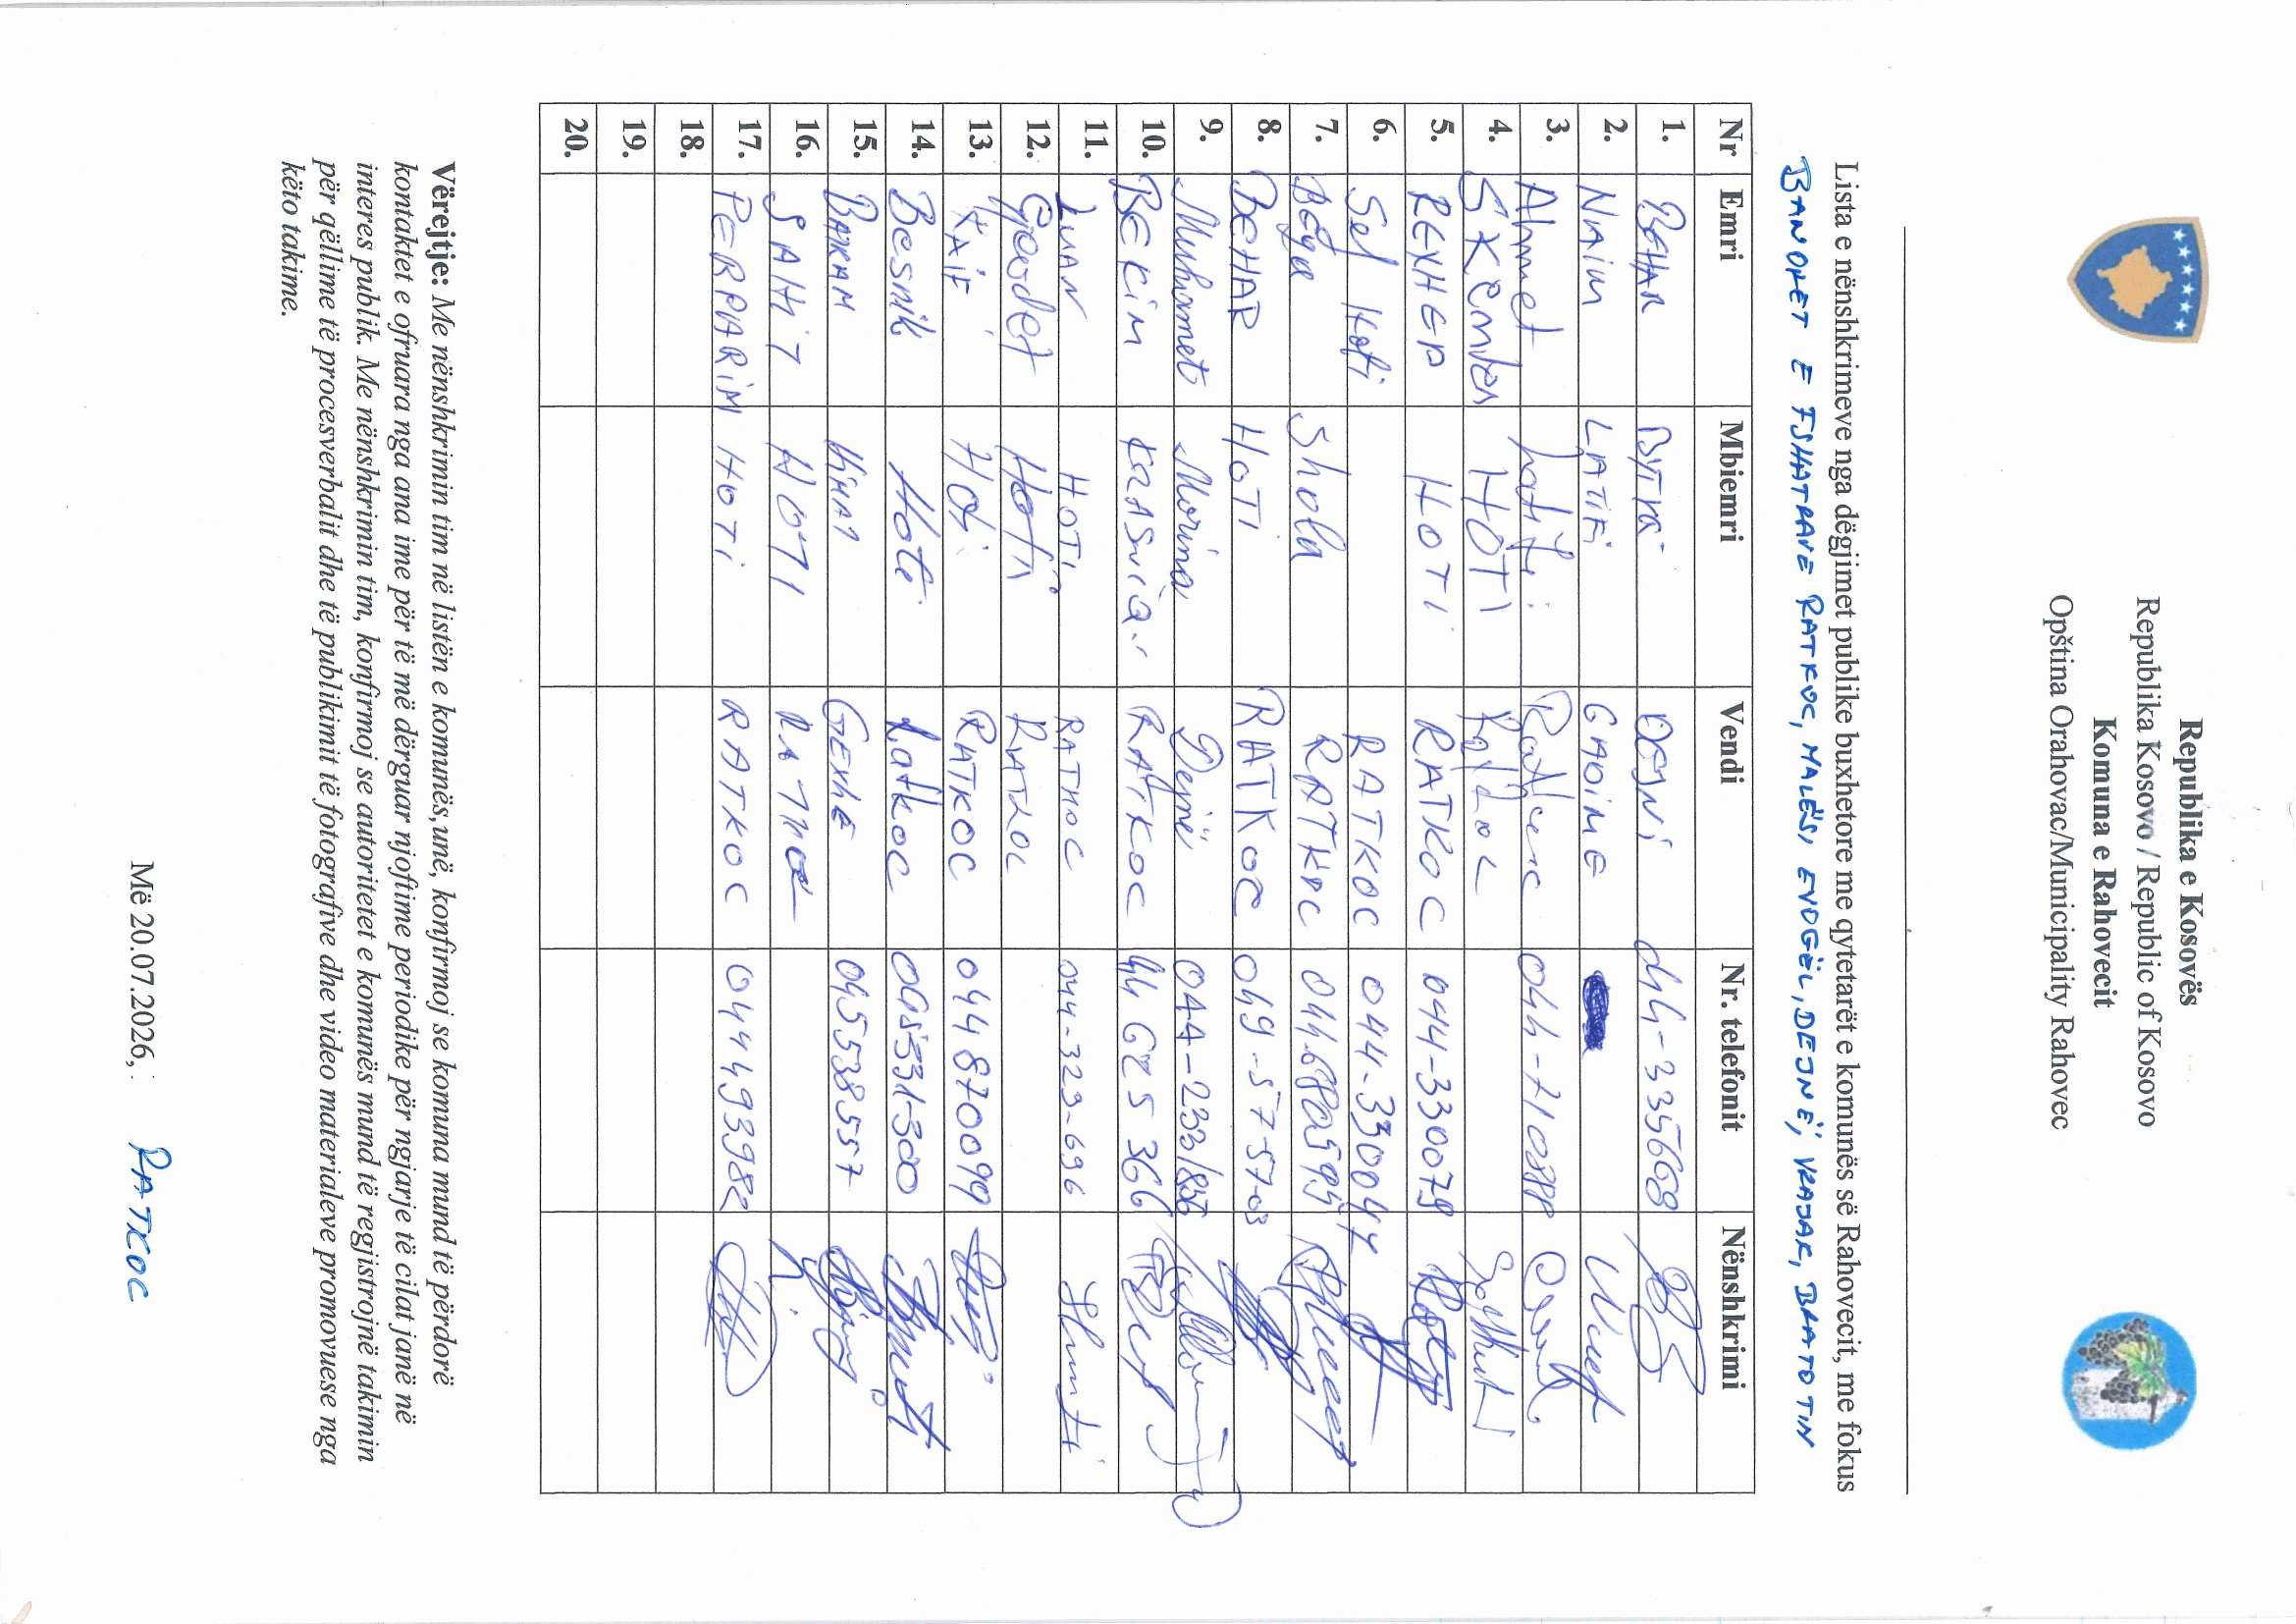 Republika e Kosovës
Republika Kosovo / Republic of Kosovo
Komuna e Rahovecit
Opština Orahovac/Municipality Rahovec
Lista e nënshkrimeve nga dëgjimet publike buxhetore me qytetarët e komunës së Rahovecit, me fokus
BANORET E FSHATRAVE RATKOC, MALËSI EVOGËL, DEJNË, KRAJAK, BRATOTIN
Nr Emri Mbiemri Vendi Nr. telefonit Nënshkrimi
1. BEHAR BYTYÇI DEJNË 044-335668
2. NAIM LATIFI GADIME
3. Ahmet Latifi Ratkoc
4. SKENDER HOTI Ratkoc
5. REXHEP HOTI RATKOC 044-330079
6. Sel Hoti RATKOC 044-330044
7. BEga Shala RATKOC
8. BEHAR HOTI RATKOC 049-57-57-03
9. Muhamet Morina Dejnë 044-233/856
10. BEKIM KRASNIQI RATKOC 44 625 366
11. LUAN HOTI RATKOC 044-323-696
12. Hoti RATKOC
13. Hoti RATKOC 044 870099
14. Besnik Hoti Ratkoc 045-331-300
15. GEXHË 045538557
16. SAHIT HOTI RATKOC
17. PËRPARIM HOTI RATKOC 044493982
18.
19.
20.
Vërejtje: Me nënshkrimin tim në listën e komunës,unë, konfirmoj se komuna mund të përdorë
kontaktet e ofruara nga ana ime për të më dërguar njoftime periodike për ngjarje të cilat janë në
interes publik. Me nënshkrimin tim, konfirmoj se autoritetet e komunës mund të regjistrojnë takimin
për qëllime të procesverbalit dhe të publikimit të fotografive dhe video materialeve promovuese nga
këto takime.
Më 20.07.2026, RATKOC